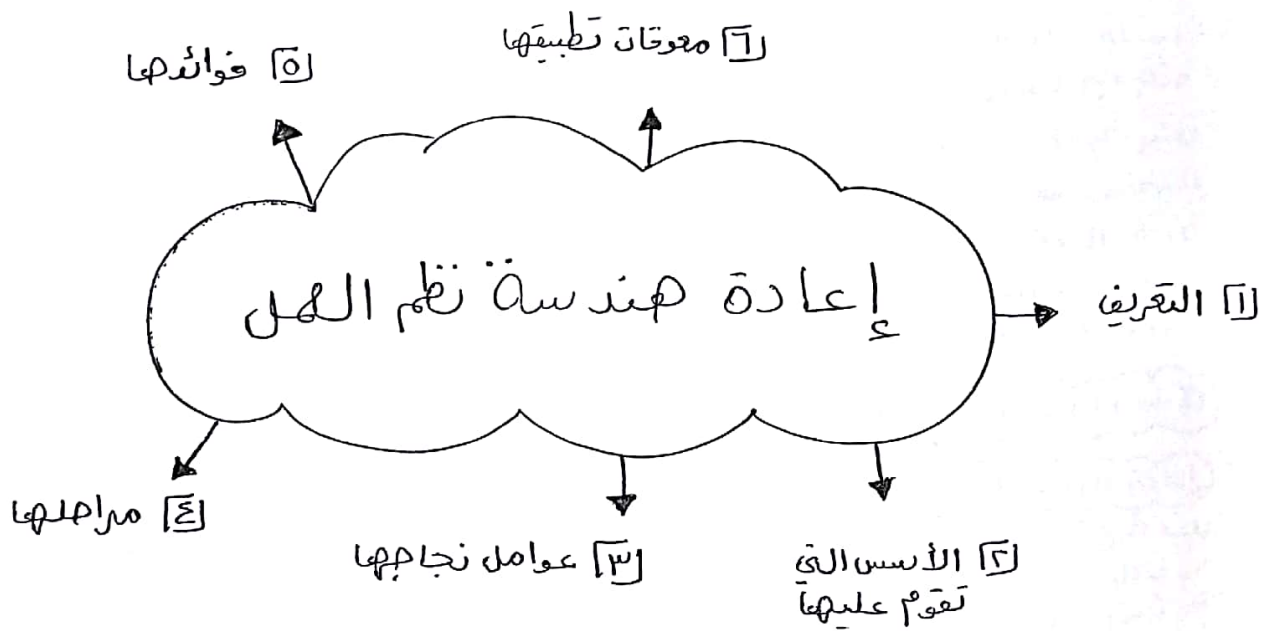 ٦ معوقات تطبيقها
٥ فوائدها
إعادة هندسة نظم العمل
١ التعريف
٤ مراحلها
٣ عوامل نجاحها
٢ الأسس التي
تقوم عليها